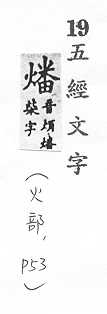 19五經文字
燔音煩燔
柴字
(火部, P53)